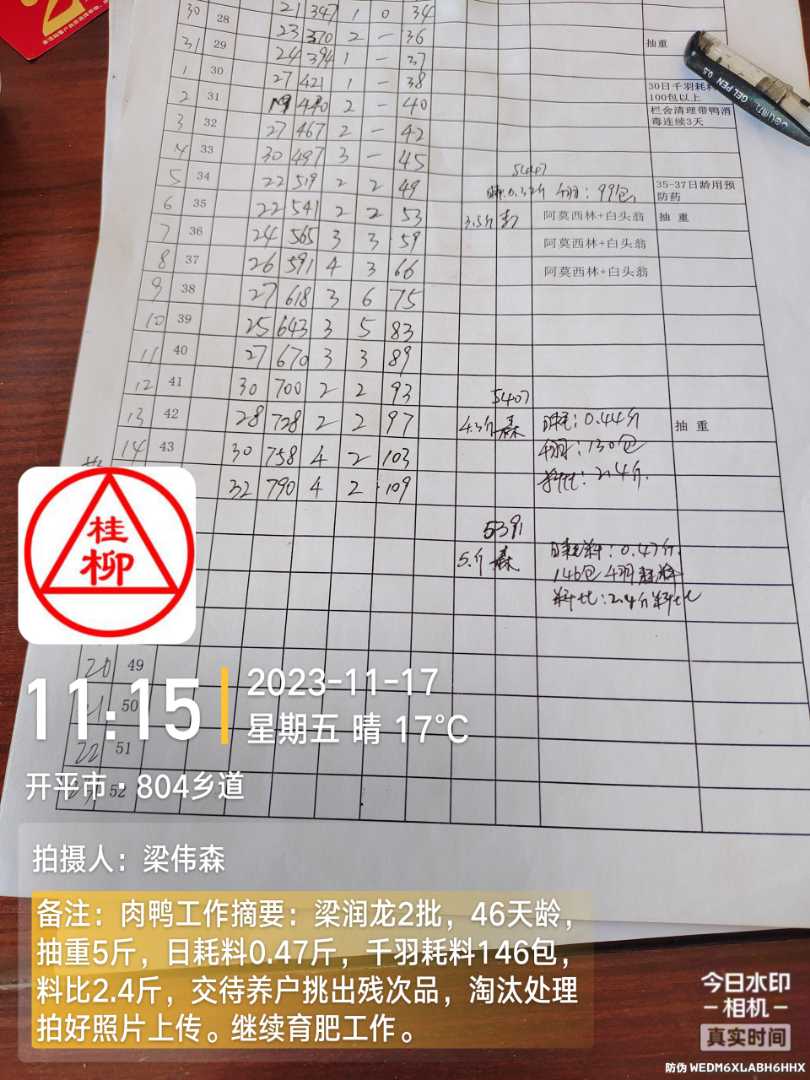 30 28 21 347 1 0 34
31 29 23 370 2 一 36 抽重
1 30 24 394 1 一 37
2 31 27 421 1 一 38 30日千羽耗料
100包以上
3 32 19 440 2 一 40 栏舍清理带鸭消
毒连续3天
4 33 27 467 2 一 42
30 497 3 一 45
5 34 22 519 2 2 49 5407 日耗0.32斤 千羽:99包 35-37日龄用预
防药
6 35 22 541 2 2 53 3.5斤 阿莫西林+白头翁 抽 重
7 36 24 565 3 3 59 阿莫西林+白头翁
8 37 26 591 4 3 66 阿莫西林+白头翁
9 38 27 618 3 6 75
10 39 25 643 3 5 83
11 40 27 670 3 3 89
12 41 30 700 2 2 93 5407
13 42 28 728 2 2 97 4.3斤 森 日耗:0.44斤 抽 重
14 43 30 758 4 2 103 千羽:130包
料比:2.4斤.
32 790 4 2 109
5391
5.斤 森 日耗料:0.47斤.
146包千羽耗料
料比:2.4斤料比
桂
柳
20 49
21 50
22 51
52
11:15
2023-11-17
星期五 晴 17℃
开平市·804乡道
拍摄人:梁伟森
备注:肉鸭工作摘要:梁润龙2批,46天龄,
抽重5斤,日耗料0.47斤,千羽耗料146包,
料比2.4斤,交待养户挑出残次品,淘汰处理
拍好照片上传。继续育肥工作。
今日水印
相机
真实时间
防伪 WEDM6XLABH6HHX
GEL PEN 0.5